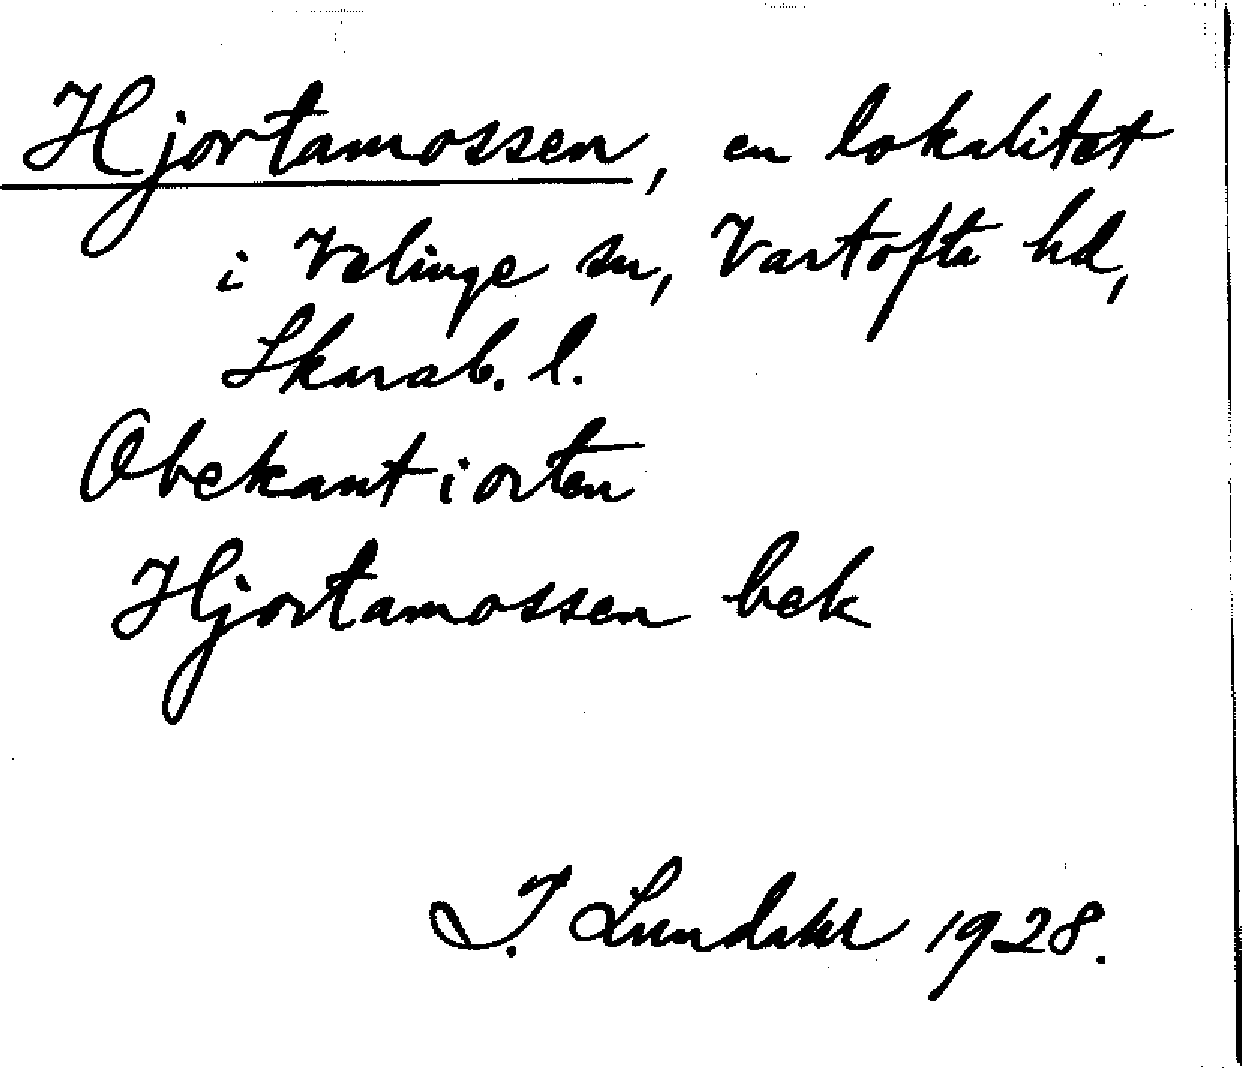 Hjortamossen, en lokalitet
i Velinge sn, Vartofta hd,
Skarab. l.
Obekant i orten
Hjortamossen bek
I. Lundahl 1928.